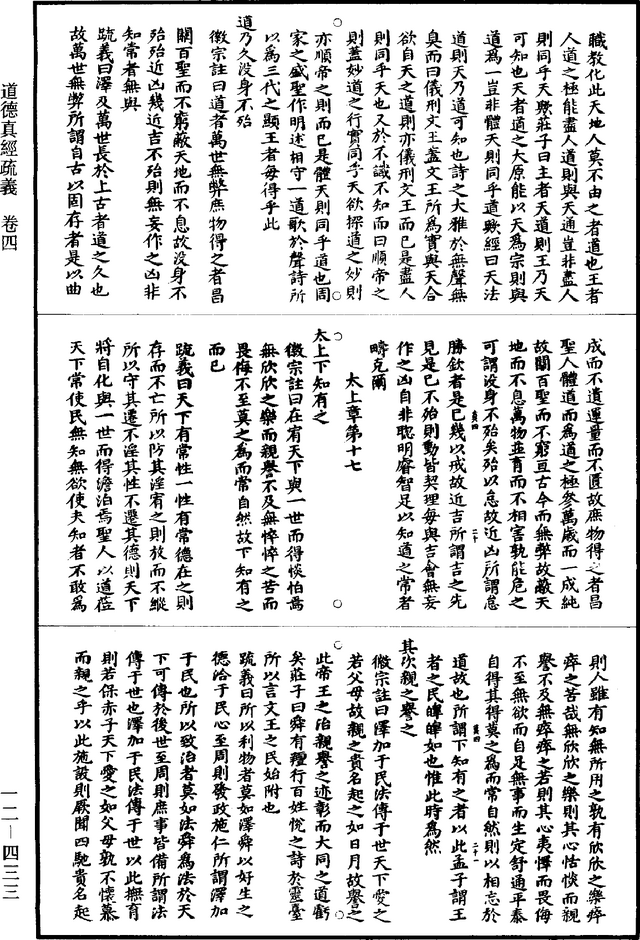 職教化此天地人莫不由之者道也王者
人道之極能盡人道則與天通豈非盡人
則同乎天歟莊子曰主者天道則王乃天
可知也天者道之大原能以天爲宗則與
道爲一豈非體天則同乎道歟經曰天法
道則天乃道可知也詩之大雅於無聲無
臭而曰儀刑文王蓋文王所爲實與天合
欲自天之道則亦儀刑文王而已是盡人
則同乎天也又於不識不知而曰順帝之
則蓋妙道之行實同乎天欲探道之妙則
亦順帝之則而已是體天則同乎道也周
家之盛聖作明述相守一道歌於聲詩所
以爲三代之顯王者毎得乎此
道乃久没身不殆
徽宗註曰道者萬世無弊庶物得之者昌
關百聖而不窮蔽天地而不息故没身不
殆殆近凶幾近吉不殆則無妄作之凶非
知常者無與
疏義曰澤及萬世長於上古者道之久也
故萬世無弊所謂自古以固存者是以曲
成而不遺運量而不匱故庶物得之者昌
聖人體道而爲道之極參萬歲而一成純
故關百聖而不窮亘古今而無弊故蔽天
地而不息萬物並育而不相害孰能危之
可謂没身不殆矣殆以怠故近凶所謂怠
勝欽者是已幾以戒故近吉所謂吉之先
見是已不殆則動皆契理毎與吉會無妄
作之凶自非聰明睿智足以知道之常者
疇克爾
太上章第十七
太上下知有之
徽宗註曰在宥天下與一世而得惔怕焉
無欣欣之樂而親譽不及無悴悴之苦而
畏侮不至莫之爲而常自然故下知有之
而已
疏義曰天下有常性一性有常德在之則
存而不亡所以防其淫宥之則放而不縱
所以守其遷不淫其性不遷其德則天下
將自化與一世而得澹泊焉聖人以道莅
天下常使民無知無欲使夫知者不敢爲
則人雖有知無所用之孰有欣欣之樂瘁
瘁之苦哉無欣欣之樂則其心恬惔而親
譽不及無瘁瘁之苦則其心夷懌而畏侮
不至無欲而自足無事而生定舒通平泰
自得其得莫之爲而常自然則以相忘於
道故也所謂下知有之者以此孟子謂王
者之民皥皥如也惟此時爲然
其次親之譽之
徽宗註曰澤加于民法傳于世天下愛之
若父母故親之貴名起之如日月故譽之
此帝王之治親譽之迹彰而大同之道虧
矣莊子曰舜有羶行百姓悅之詩於靈臺
所以言文王之民始附也
疏義曰所以利物者莫如澤舜以好生之
德洽于民心至周則發政施仁所謂澤加
于民也所以致治者莫如法舜爲法於天
下可傳於後世至周則庶事皆備所謂法
傳于世也澤加于民法傳于世以此撫育
則若保赤子天下愛之如父母孰不懷慕
而親之乎以此施設則厥聞四馳貴名起
道德真經疏義　卷四
一二—四三三